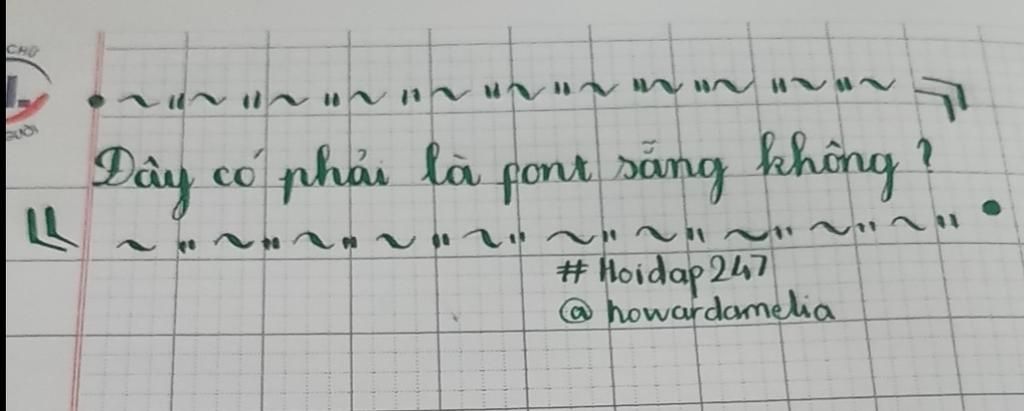 CHO
NGƯỜI
Đây có phải là font sãng không?
# Hoidap247
@ howardamelia